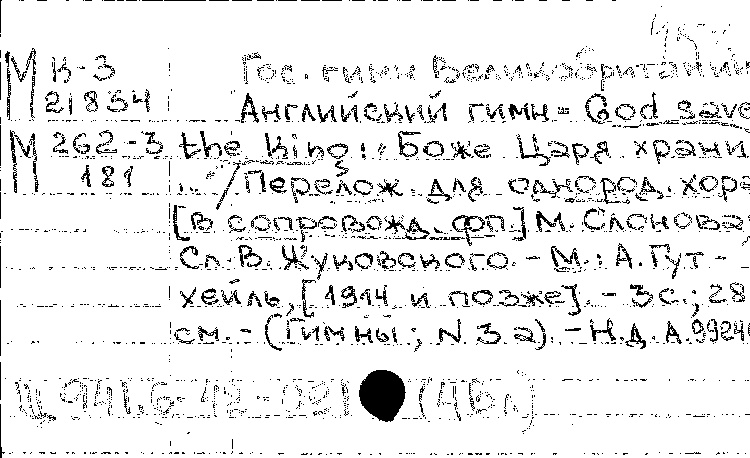 М К-3 Гос. гимн Великобритании
21834 Английский гимн = God save
М 262-3 the King: Боже Царя храни
181 ... / Перелож. для однород. хора
[в сопровожд. фп.] М. Слонова;
Сл. В. Жуковского. - М.: А. Гут-
хейль, [1914 и позже]. - 3 с.; 28
см. - (Гимны; N 3а). - Н.д. А.9924
Щ 941.6-42-021 (4бл)